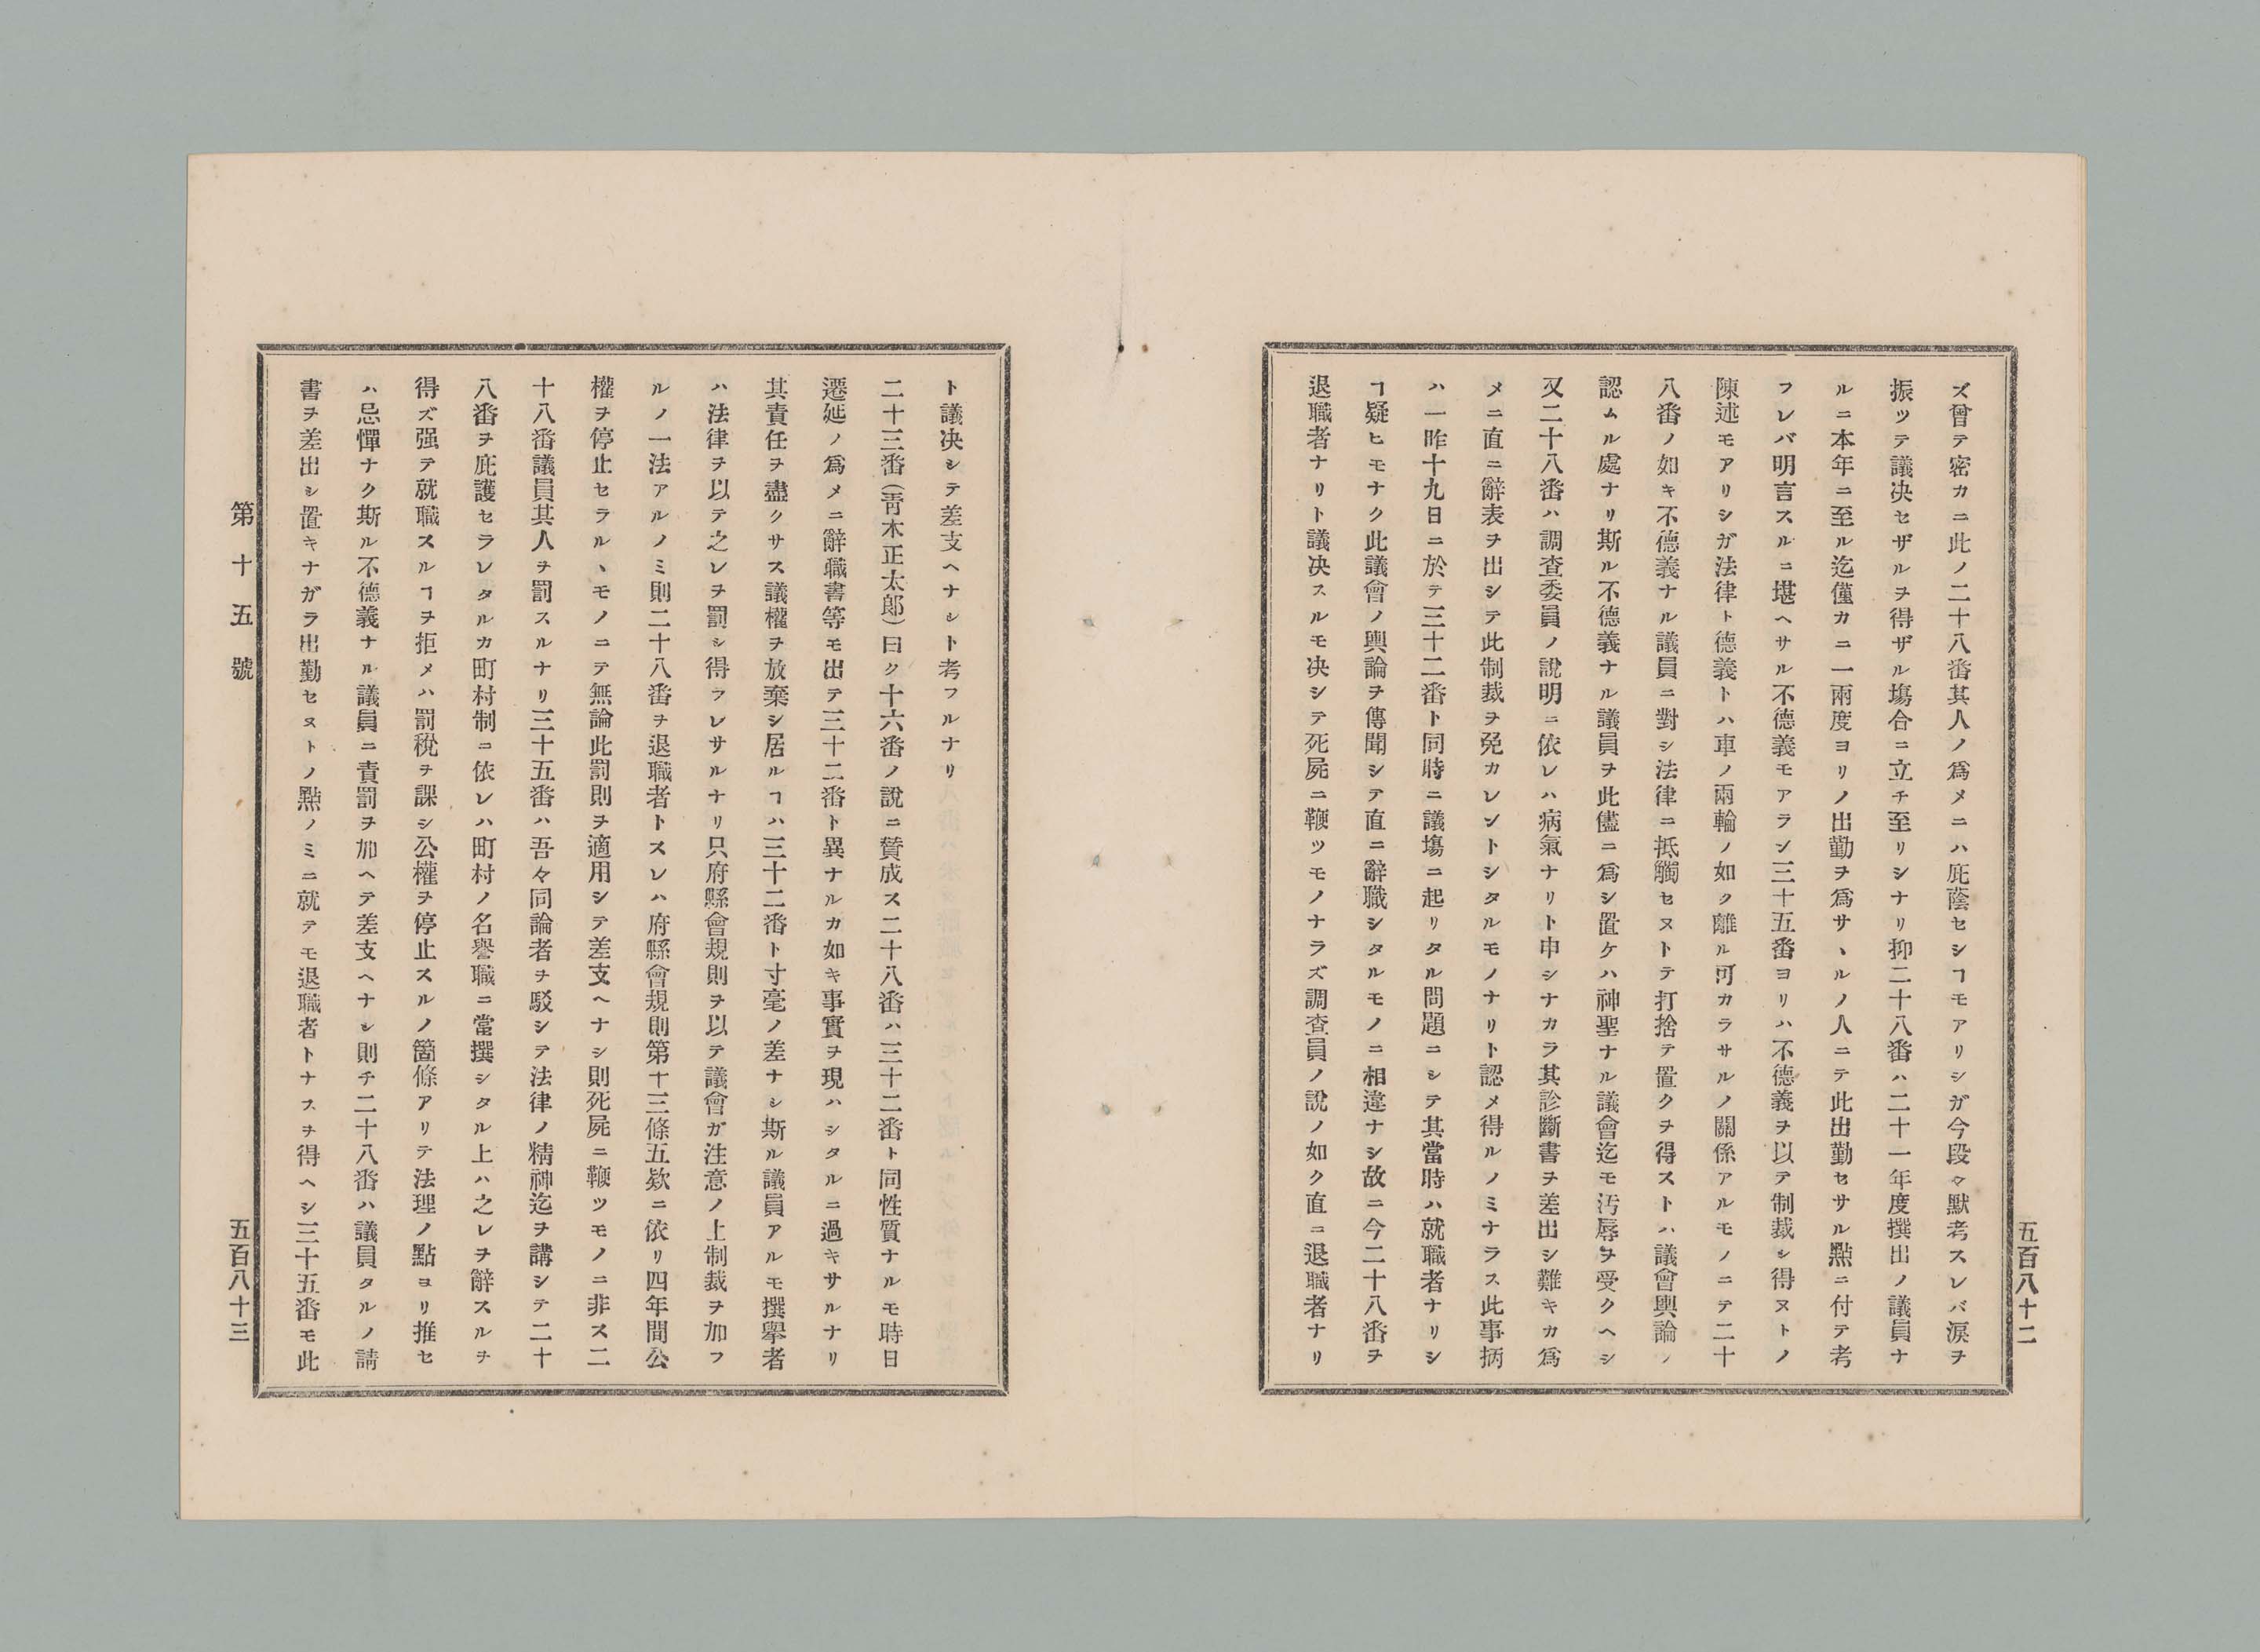 五百八十二
ズ曾テ密カニ此ノ二十八番其人ノ爲メニハ庇蔭セシヿモアリシガ今段々默考スレバ涙ヲ
振ツテ議决セザルヲ得ザル塲合ニ立チ至リシナリ抑二十八番ハ二十一年度撰出ノ議員ナ
ルニ本年ニ至ル迄僅カニ一兩度ヨリノ出勤ヲ爲サヽルノ人ニテ此出勤セサル點ニ付テ考
フレバ明言スルニ堪ヘサル不德義モアラン三十五番ヨリハ不德義ヲ以テ制裁シ得ヌトノ
陳述モアリシガ法律ト德義トハ車ノ兩輪ノ如ク離ル可カラサルノ關係アルモノニテ二十
八番ノ如キ不德義ナル議員ニ對シ法律ニ抵觸セヌトテ打捨テ置クヲ得ストハ議會輿論ノ
認ムル處ナリ斯ル不德義ナル議員ヲ此儘ニ爲シ置ケハ神聖ナル議會迄モ汚辱ヲ受クヘシ
又二十八番ハ調査委員ノ說明ニ依レハ病氣ナリト申シナカラ其診斷書ヲ差出シ難キカ爲
メニ直ニ辭表ヲ出シテ此制裁ヲ免カレントシタルモノナリト認メ得ルノミナラス此事抦
ハ一昨十九日ニ於テ三十二番ト同時ニ議塲ニ起リタル問題ニシテ其當時ハ就職者ナリシ
ヿ疑ヒモナク此議會ノ輿論ヲ傳聞シテ直ニ辭職シタルモノニ相違ナシ故ニ今二十八番ヲ
退職者ナリト議决スルモ决シテ死屍ニ鞭ツモノナラズ調査員ノ說ノ如ク直ニ退職者ナリ
ト議决シテ差支ヘナシト考フルナリ
二十三番(靑木正太郎)曰ク十六番ノ說ニ賛成ス二十八番ハ三十二番ト同性質ナルモ時日
遷延ノ爲メニ辭職書等モ出テ三十二番ト異ナルカ如キ事實ヲ現ハシタルニ過キサルナリ
其責任ヲ盡クサス議權ヲ放棄シ居ルヿハ三十二番ト寸毫ノ差ナシ斯ル議員アルモ撰擧者
ハ法律ヲ以テ之レヲ罰シ得ラレサルナリ只府縣會規則ヲ以テ議會ガ注意ノ上制裁ヲ加フ
ルノ一法アルノミ則二十八番ヲ退職者トスレハ府縣會規則第十三條五欵ニ依リ四年間公
權ヲ停止セラルヽモノニテ無論此罰則ヲ適用シテ差支ヘナシ則死屍ニ鞭ツモノニ非ス二
十八番議員其人ヲ罰スルナリ三十五番ハ吾々同論者ヲ駁シテ法律ノ精神迄ヲ講シテ二十
八番ヲ庇護セラレタルカ町村制ニ依レハ町村ノ名譽職ニ當撰シタル上ハ之レヲ辭スルヲ
得ズ强テ就職スルヿヲ拒メハ罰稅ヲ課シ公權ヲ停止スルノ箇條アリテ法理ノ點ヨリ推セ
ハ忌憚ナク斯ル不德義ナル議員ニ責罰ヲ加ヘテ差支ヘナシ則チ二十八番ハ議員タルノ請
書ヲ差出シ置キナガラ出勤セヌトノ點ノミニ就テモ退職者トナスヲ得ヘシ三十五番モ此
第十五號
五百八十三